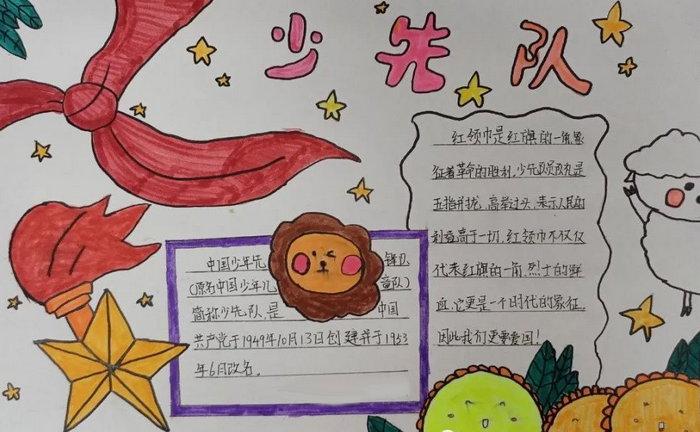 少先队
中国少年先 锋队
(原名中国少年儿 童队)
简称少先队,是 中国
共产党于1949年10月13日创建并于1953
年6月改名。
红领巾是红旗的一角,象
征着革命的胜利,少先队队礼是
五指并拢,高举过头,表示人民的
利益高于一切,红领巾不仅仅
代表红旗的一角,烈士的鲜
血,它更是一个时代的象征,
因此我们更要爱国!